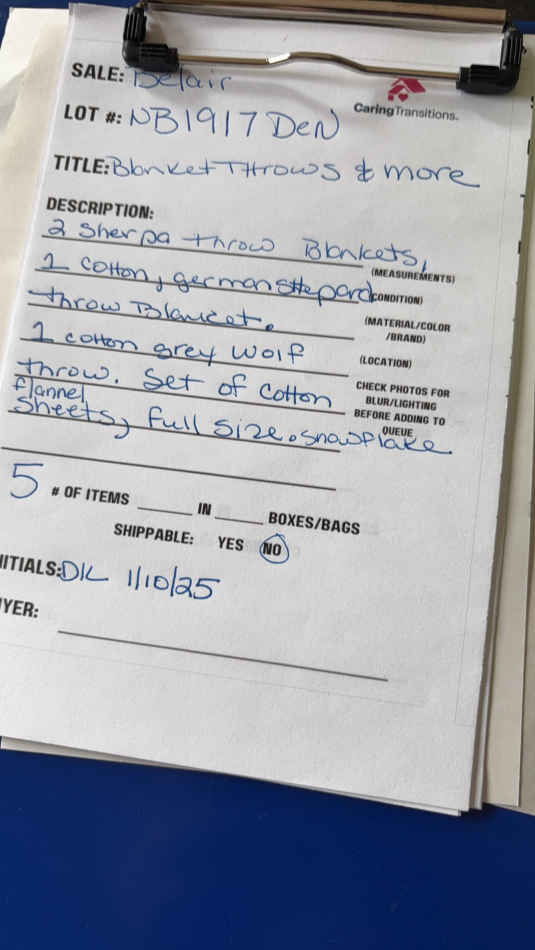 SALE: Belair
CaringTransitions.
LOT #: NB1917 DeN
TITLE: Blanket THrows & more
DESCRIPTION:
2 Sherpa throw Blankets,
(MEASUREMENTS)
1 cotton, german sheppard
(CONDITION)
throw Blanket.
(MATERIAL/COLOR
/BRAND)
1 cotton grey wolf
(LOCATION)
throw. Set of cotton
CHECK PHOTOS FOR
BLUR/LIGHTING
BEFORE ADDING TO
QUEUE
flannel
Sheets, Full size. snowflake
5 # OF ITEMS ______ IN ______ BOXES/BAGS
SHIPPABLE: YES NO
ITIALS: DK 1/10/25
YER: